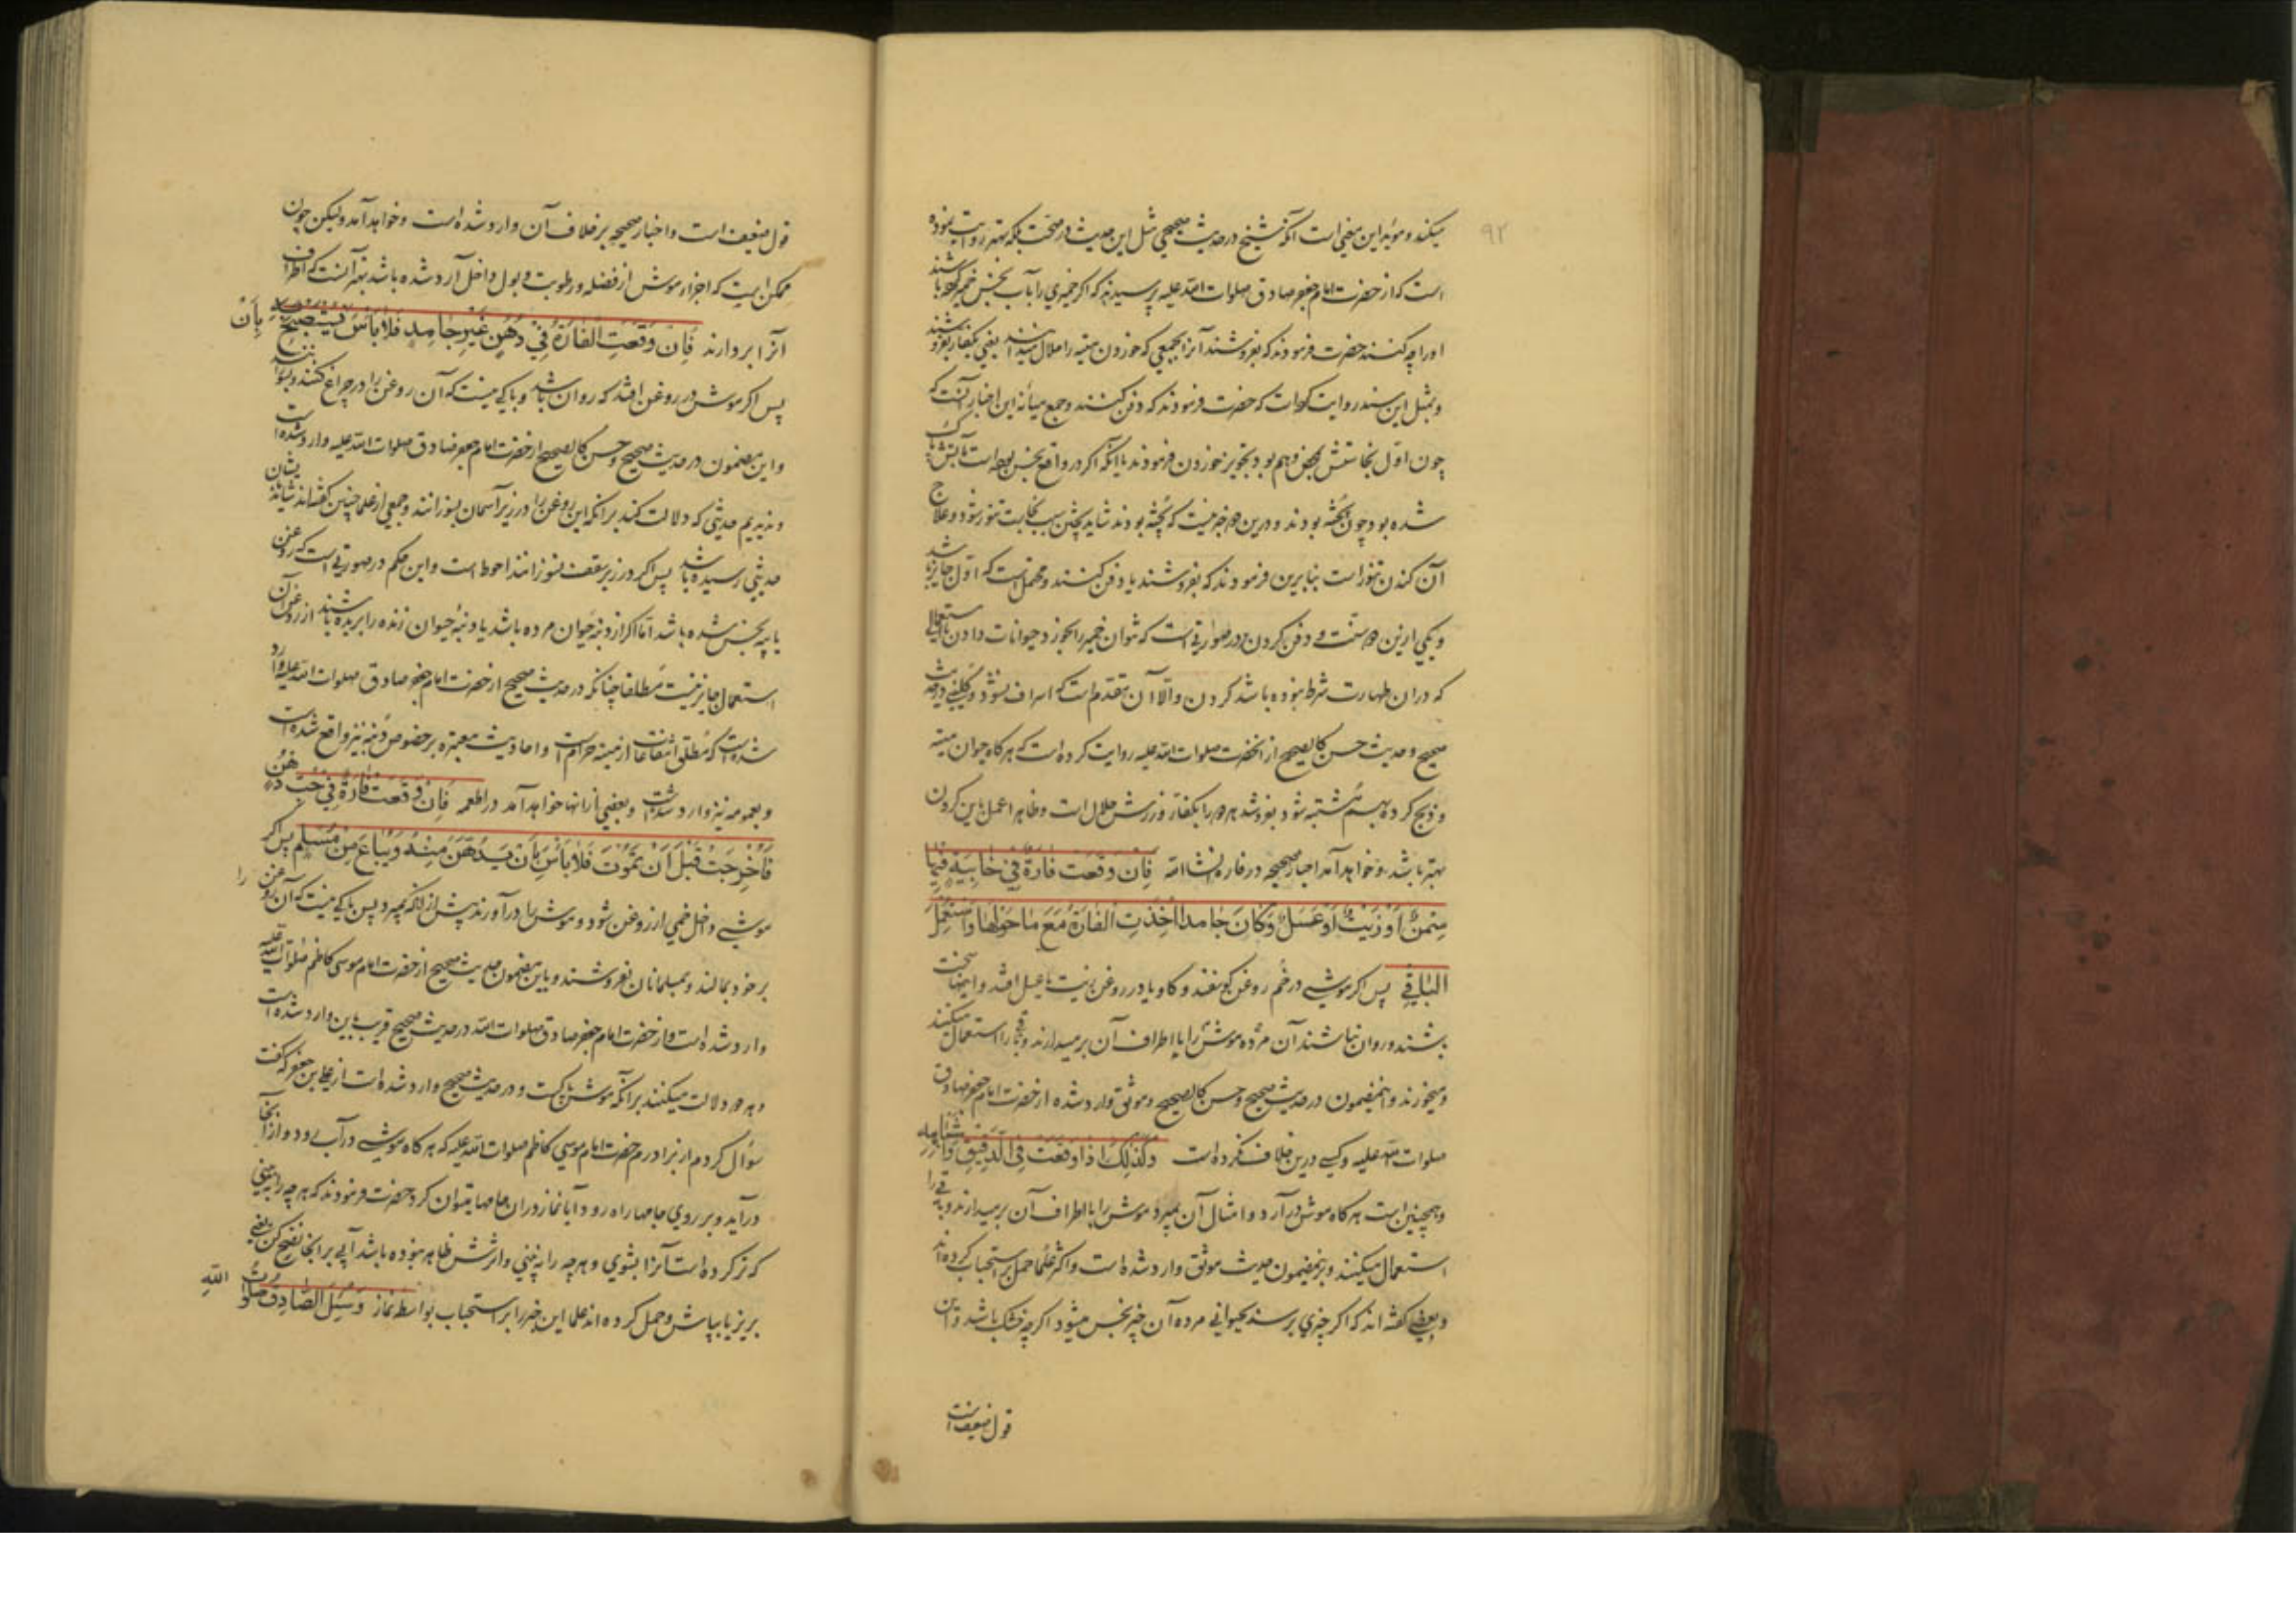 ۹۲
میکند و موید این معنی است آنکه شیخ در حدیث صحیحی مثل این حدیث در صحت بلکه بهتر روایت نموده
است که از حضرت امام جعفر صادق صلوات الله علیه پرسیدند که اگر خمیری را بآب نجس خمیر کرده باشند
او را چه کنند حضرت فرمودند که بفروشند آنرا بجمعی که خوردن میته را حلال میدانند یعنی بکفار بفروشند
و بمثل این سند روایت کرده است که حضرت فرمودند که دفن کنند و جمع میانه این اخبار آنست که
چون اول نجاستش محض وهم بود تجویز خوردن فرمودند با آنکه اگر در واقع نجس بوده است بآتش پاک
شده بود چون پخته بودند و درین دو خبر نیست که پخته بودند شاید پختن سبب نجاست تنور شود و علاج
آن کندن تنور است بنابرین فرمودند که بفروشند یا دفن کنند و محتملست که اول جایز باشد
و یکی ازین دو سنت و دفن کردن در صورتی است که نتوان خمیر را بخورد حیوانات دادن یا استعمالی
که در آن طهارت شرط نبوده باشد کردن والا آن مقدم است که اسراف نشود و کلینی در حدیث
صحیح و حدیث حسن کالصحیح از آنحضرت صلوات الله علیه روایت کرده است که هرگاه حیوان میته
و ذبح کرده بهم مشتبه شود بفروشد هر دو را بکفار و زرش حلال است و ظاهرا عمل باین کردن
بهتر باشد و خواهد آمد اخبار صحیحه در فاره انشاءالله فَاِنْ وَقَعَت فارَةٌ فی خابِیَةٍ فیها
سَمنٌ اَو زَیتٌ اَو عَسَلٌ وَ کانَ جامِدا اُخِذَتِ الفارَةُ مَعَ ما حَولَها وَاستُعمِلَ
الباقی پس اگر موشی در خم روغن گوسفند و گاو یا در روغن زیت یا عسل افتد و اینها سخت
باشند و روان نباشند آن مرده موش را با اطراف آن برمیدارند و باقی را استعمال میکنند
و میخورند و اینمضمون در حدیث صحیح و حسن کالصحیح و موثق وارد شده از حضرت امام جعفر صادق
صلوات الله علیه و کسی درین خلاف نکرده است وَ کَذٰلِکَ اِذا وَقَعَت فِی الدَّقیقِ وَ اَشباهِهِ
و همچنین است هرگاه موش در آرد و امثال آن بمیرد موش را با اطراف آن برمیدارند و باقی را
استعمال میکنند و برینمضمون حدیث موثق وارد شده است و اکثر علما حمل بر استحباب کرده اند
و بعضی گفته اند که اگر چیزی برسد بحیوانی مرده آن چیز نجس میشود اگر چه خشک باشد و این
قول ضعیف است
قول ضعیف است و اخبار صحیحه بر خلاف آن وارد شده است و خواهد آمد ولیکن چون
ممکن است که اجزاء موش از فضله و رطوبت و بول داخل آرد شده باشد بهتر آنست که اطراف
آنرا بردارند فَاِن وَقَعَتِ الفارَةُ فی دُهنٍ غَیرِ جامِدٍ فَلا بَأسَ بِاَن یُستَصبَحَ بِهِ
پس اگر موش در روغن افتد که روان باشد و باکی نیست که آن روغن را در چراغ کنند و بسوزانند
و این مضمون در حدیث صحیح و حسن کالصحیح از حضرت امام جعفر صادق صلوات الله علیه وارد شده است
و ندیدیم حدیثی که دلالت کند بر آنکه این روغن را در زیر آسمان بسوزانند و جمعی از علما چنین گفته اند شاید بایشان
حدیثی رسیده باشد پس اگر در زیر سقف نسوزانند احوط است و این حکم در صورتی است که روغن
یا پیه نجس شده باشد اما اگر از دنبه حیوان مرده باشد یا دنبه حیوان زنده را بریده باشند از روغن آن
استعمال جایز نیست مطلقا چنانکه در حدیث صحیح از حضرت امام جعفر صادق صلوات الله علیه وارد
شده است که مطلق انتفاعات از میته حرام است و احادیث معتبره بر خصوص دنبه نیز واقع شده است
و بعمومه نیز وارد شده است و بعضی از آنها خواهد آمد در اطعمه فَاِن وَقَعَت فَارَةٌ فی حُبِّ دُهنٍ
فَاُخرِجَت قَبلَ اَن تَموتَ فَلا بَأسَ بِاَن یُدَّهَنَ مِنهُ وَ یُباعَ مِن مُسلِمٍ پس اگر
موشی داخل خمی از روغن شود و موش را درآورند پیش از آنکه بمیرد پس باکی نیست که آن روغن را
بر خود بمالند و بمسلمانان بفروشند و باین مضمون حدیث صحیح از حضرت امام موسی کاظم صلوات الله علیه
وارد شده است و از حضرت امام جعفر صادق صلوات الله در حدیث صحیح قریب باین وارد شده است
و هر دو دلالت میکنند بر آنکه موش پاکست و در حدیث صحیح وارد شده است از علی بن جعفر که گفت
سؤال کردم از برادرم حضرت امام موسی کاظم صلوات الله علیه که هرگاه موشی در آب رود و از آنجا
درآید و بر روی جامها راه رود آیا نماز در آن جامها میتوان کرد حضرت فرمودند که هر چه را به بینی
که تر کرده است آنرا بشوی و هر چه را نه بینی و اثرش ظاهر نبوده باشد آبی بر آنجا نضح کن یعنی
بریز یا بپاش و حمل کرده اند علما این خبر را بر استحباب بواسطه نماز وَ سُئِلَ الصّادِقُ صَلَواتُ اللهِ